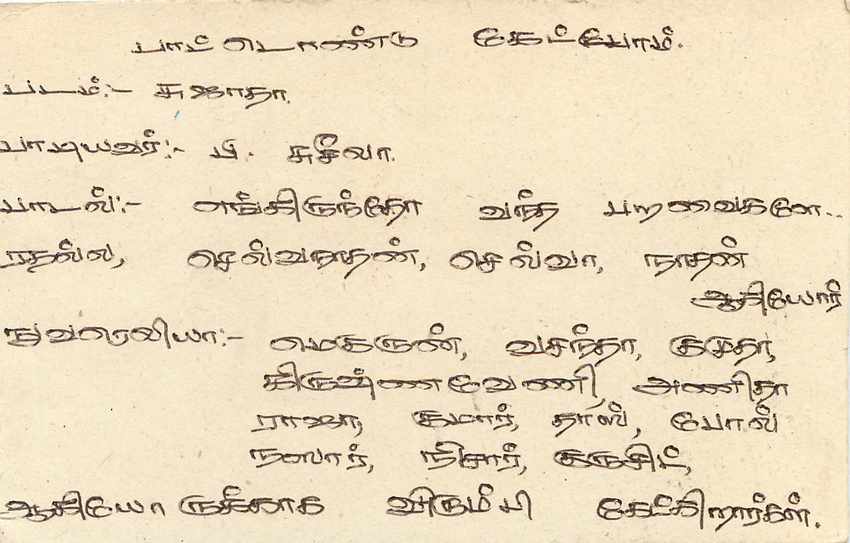 பாட்டொண்டு கேட்போம்.
படம்:- சுஜாதா.
பாடியவர்:- பி. சுசீலா.
பாடல்:- எங்கிருந்தோ வந்த பறவைகளே..
ரதல்ல, செல்வநாதன், செல்வா, நாதன்
ஆகியோர்
நுவரெலியா:- மெகருன், வசந்தா, குமுதா,
கிருஷ்ணவேணி, அனிதா
ராஜா, குமார், தாஸ், போல்
நஸார், நிசார், குருசிட்,
ஆகியோருக்காக விரும்பி கேட்கிறார்கள்.